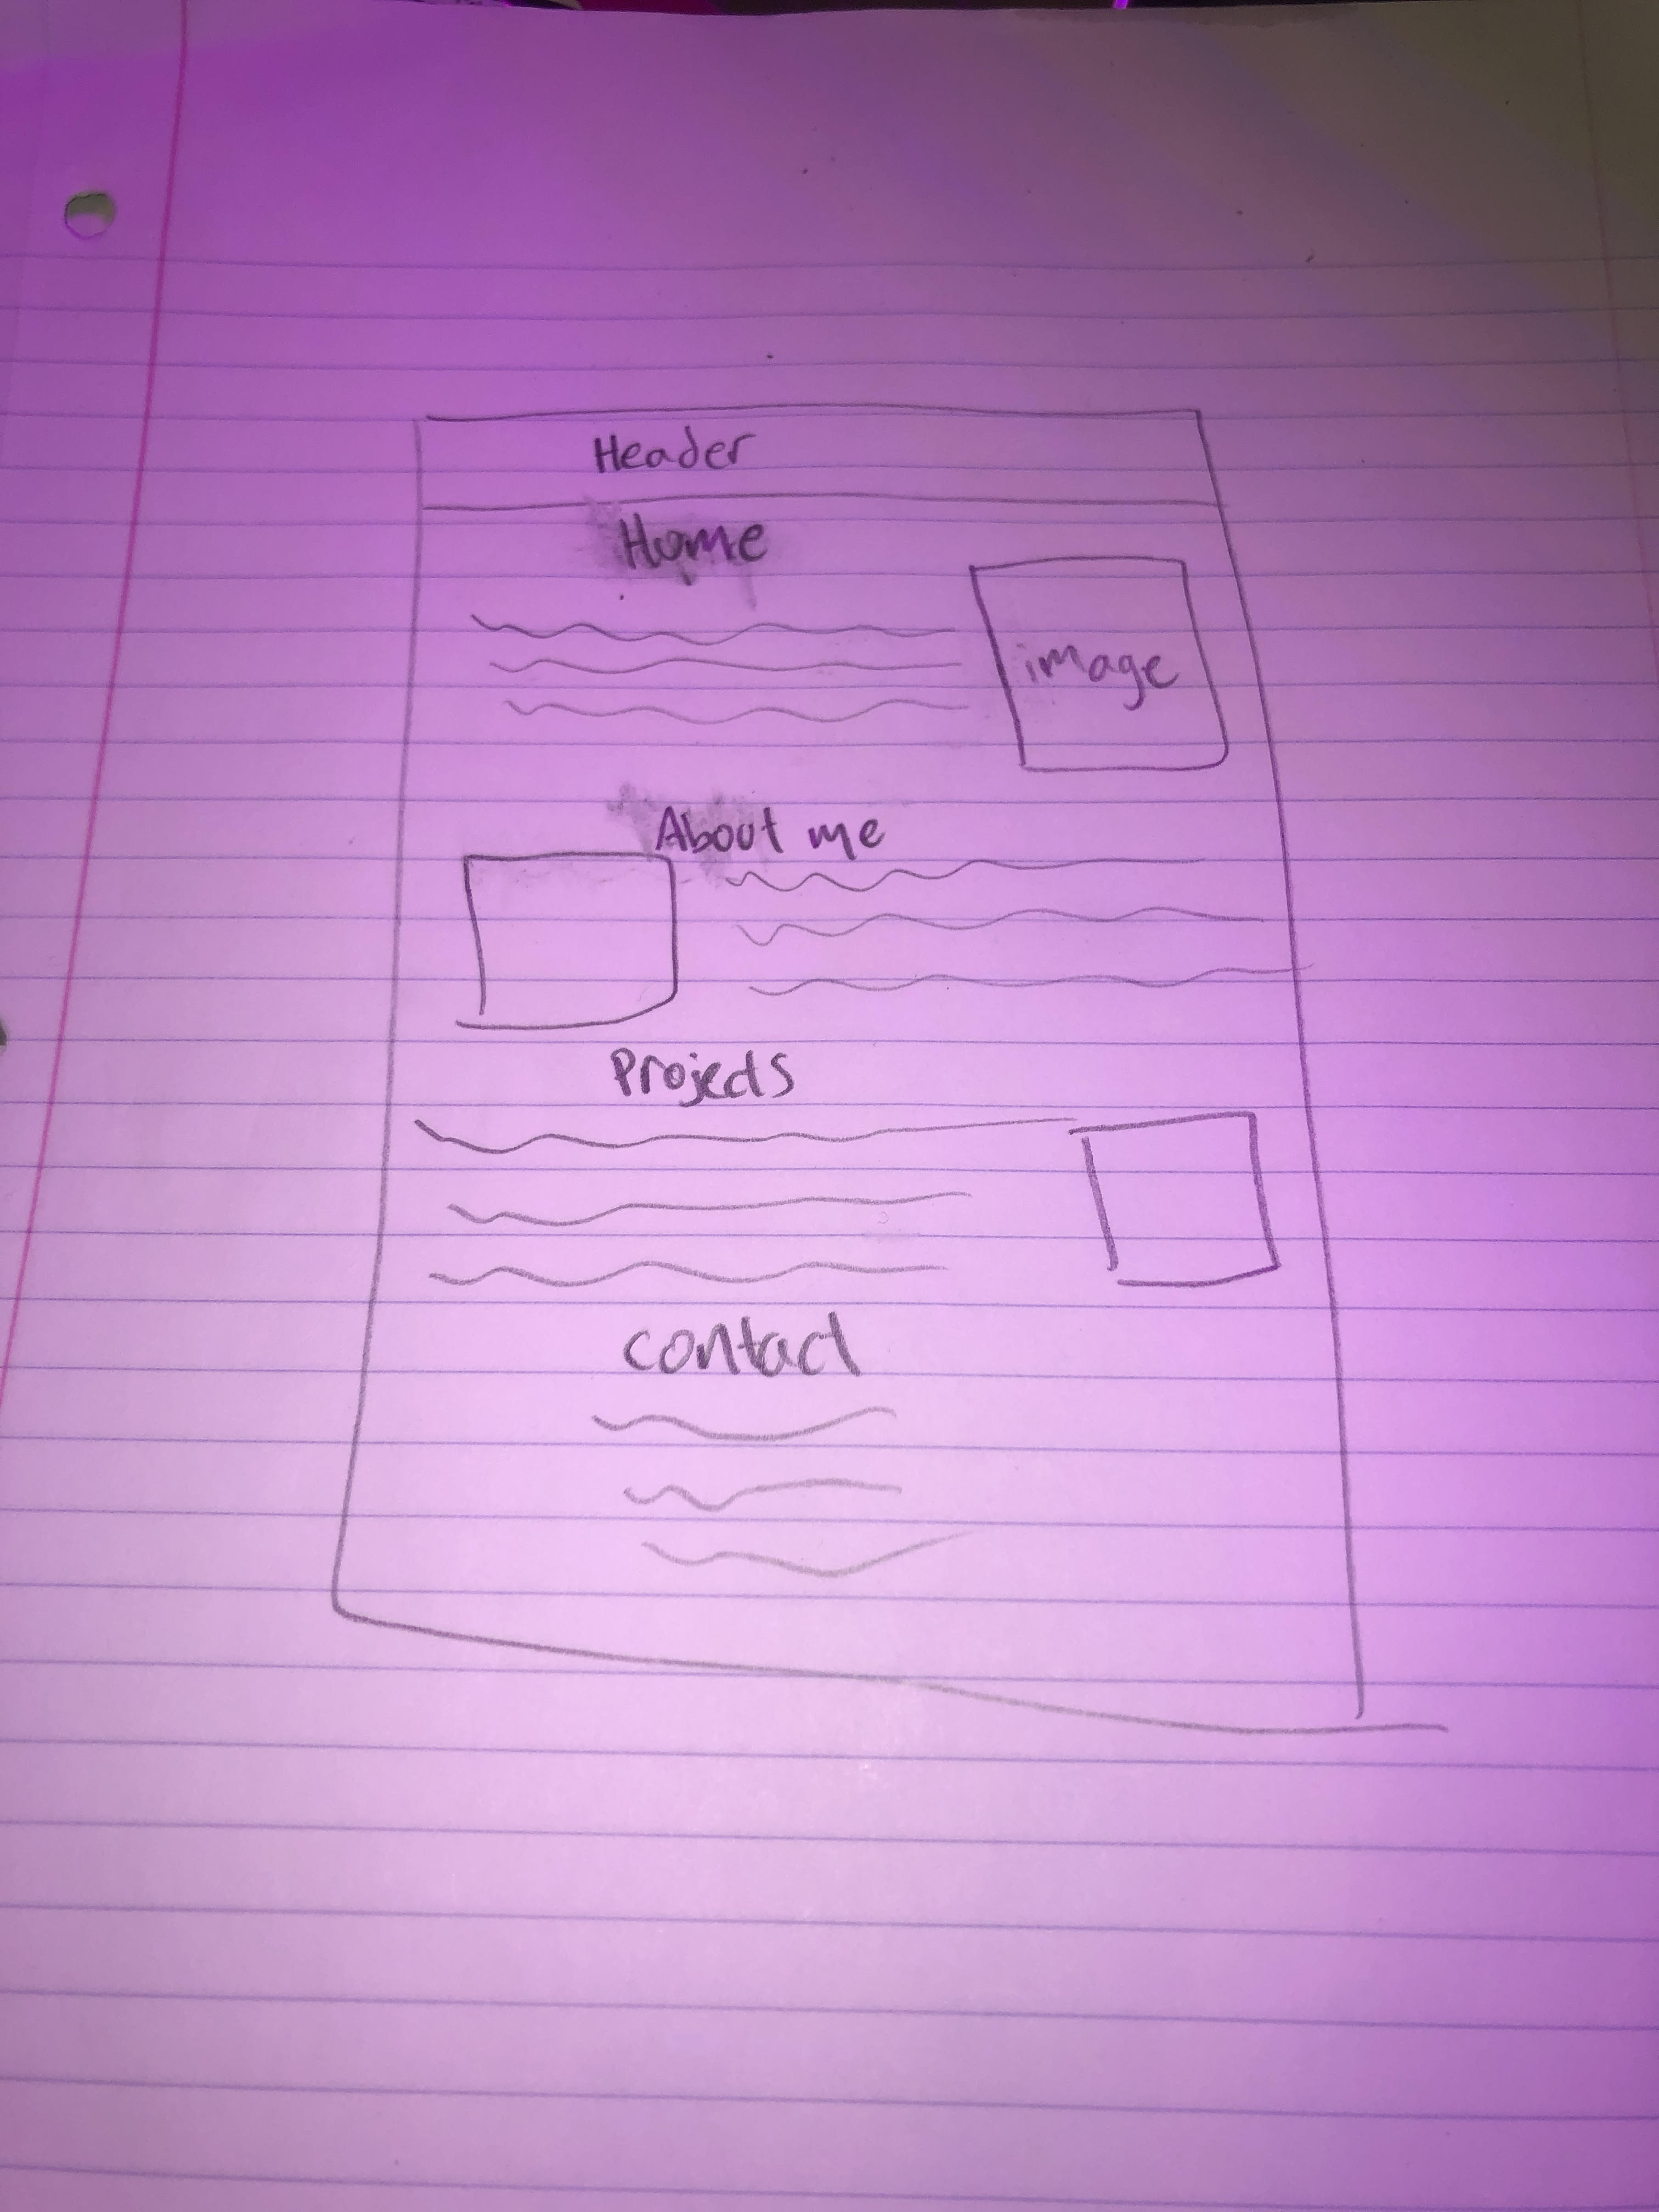 Header
Home
image
About me
Projects
contact